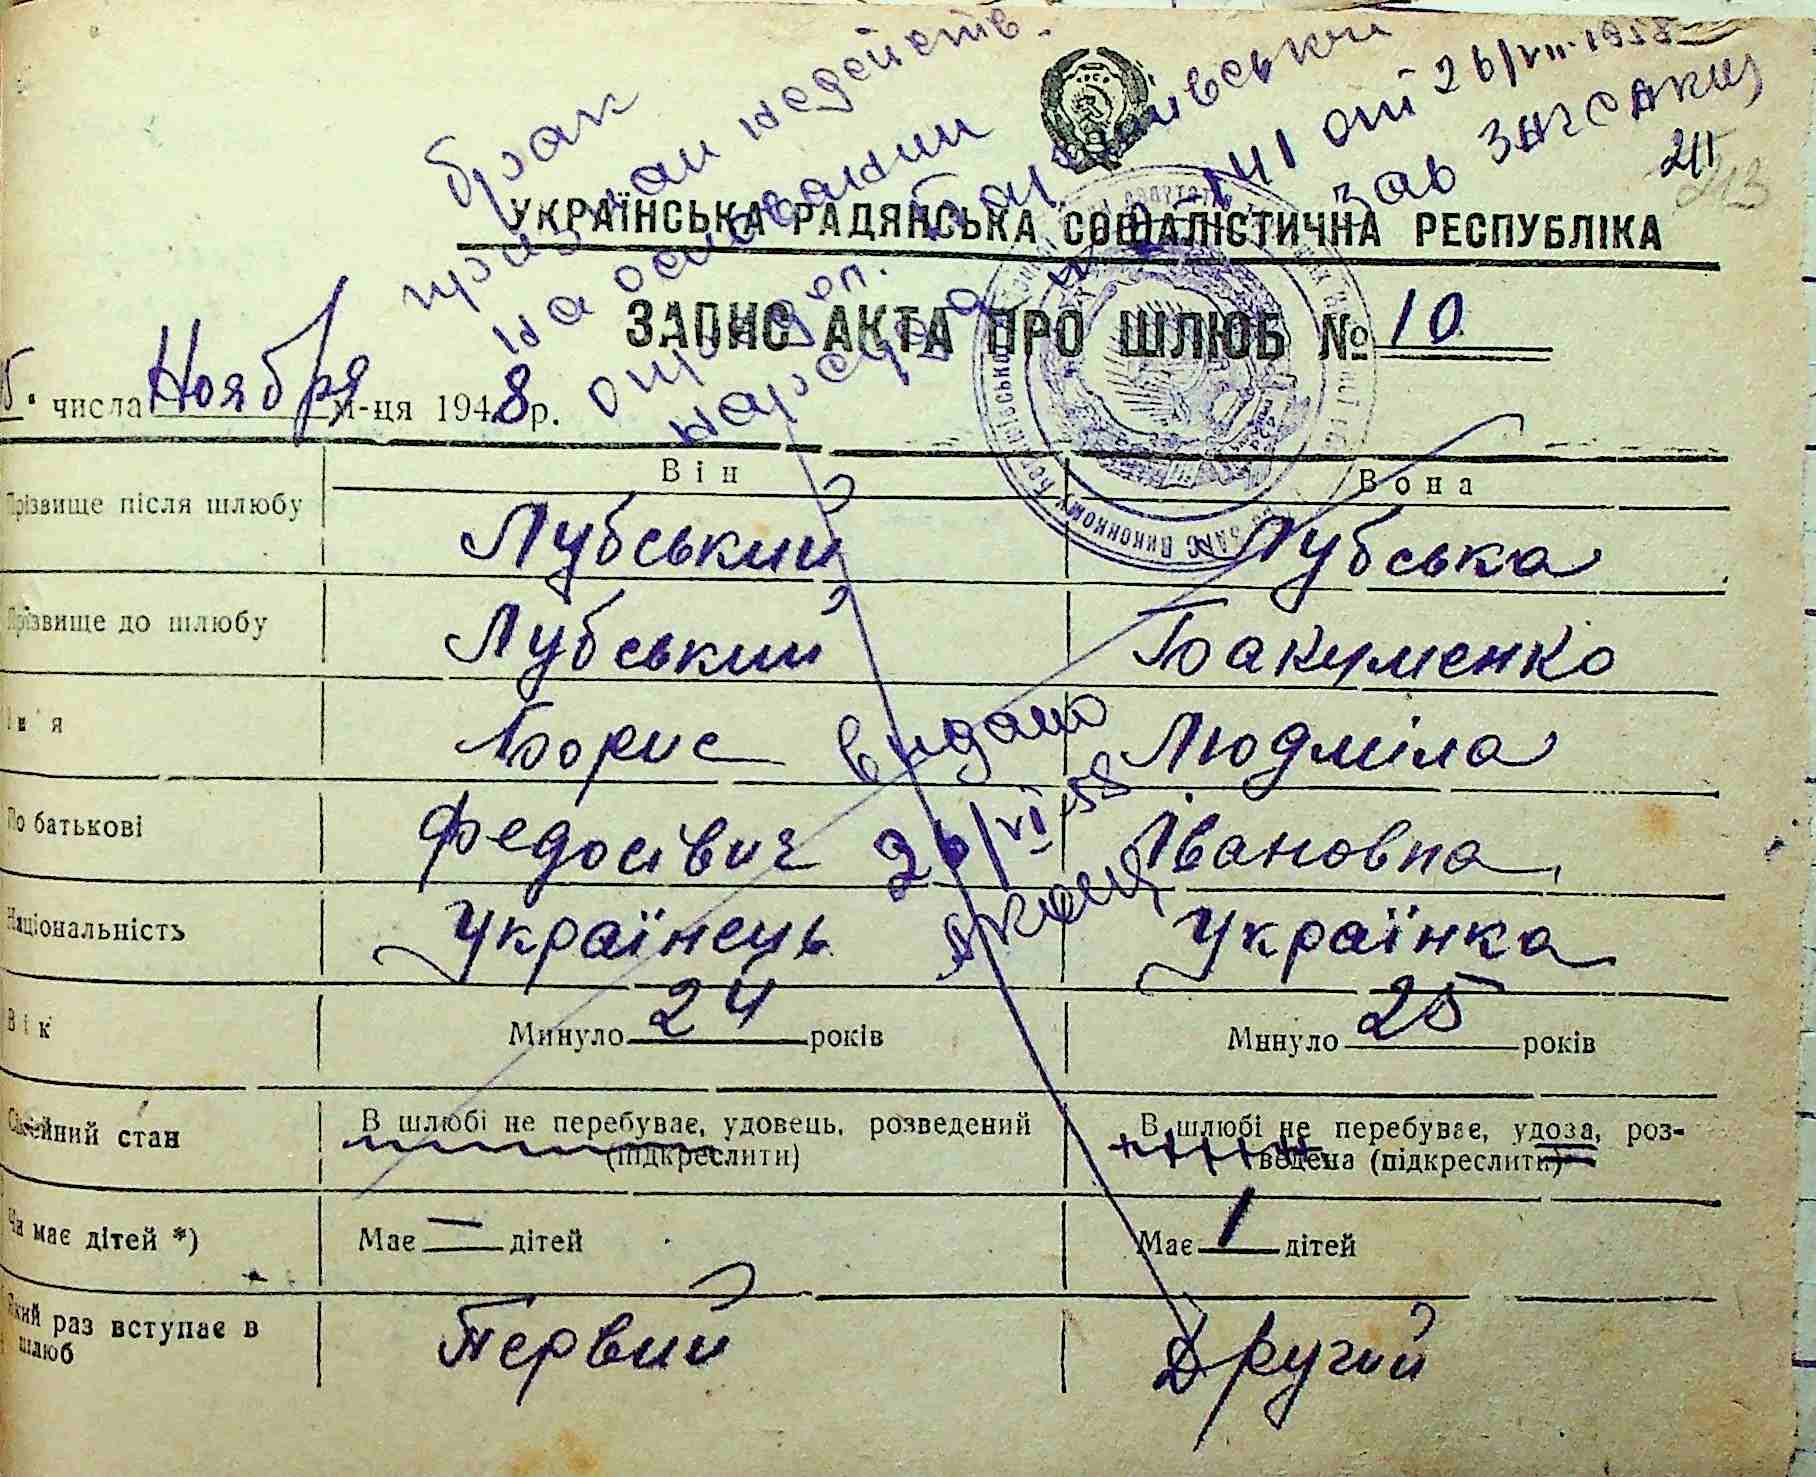 брак
признан недейств.
на основании
опредол.
нарсуда № 2141 от 26/VII-1958
зав загсакиц
211
213
УКРАЇНСЬКА РАДЯНСЬКА СОЦІАЛІСТИЧНА РЕСПУБЛІКА
ЗАПИС АКТА ПРО ШЛЮБ № 10
числа Ноября м-ця 1948 р.
Він Вона
Прізвище після шлюбу Лубський Лубська
Прізвище до шлюбу Лубський Бакуменко
Ім'я Борис Людміла
По батькові Федосівич Івановна
видано
26/VI-58
Національність Українець Українка
Вік Минуло 24 років Минуло 25 років
Сімейний стан В шлюбі не перебуває, удовець, розведений (підкреслити) В шлюбі не перебуває, удова, роз-
ведена (підкреслити)
Чи має дітей *) Має — дітей Має 1 дітей
Який раз вступає в Первий Другий
шлюб